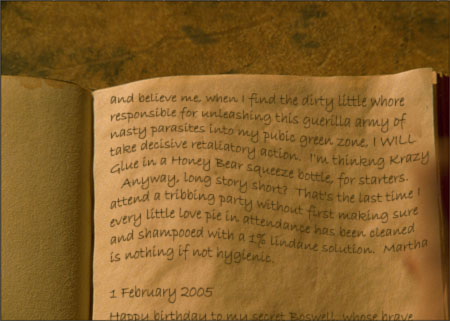 and believe me, when I find the dirty little whore
responsible for unleashing this guerilla army of
nasty parasites into my pubic green zone, I WILL
take decisive retaliatory action. I'm thinking Krazy
Glue in a Honey Bear squeeze bottle, for starters.
Anyway, long story short? That's the last time I
attend a tribbing party without first making sure
every little love pie in attendance has been cleaned
and shampooed with a 1% lindane solution. Martha
is nothing if not hygienic.
1 February 2005
Happy birthday to my secret Boswell, whose brave